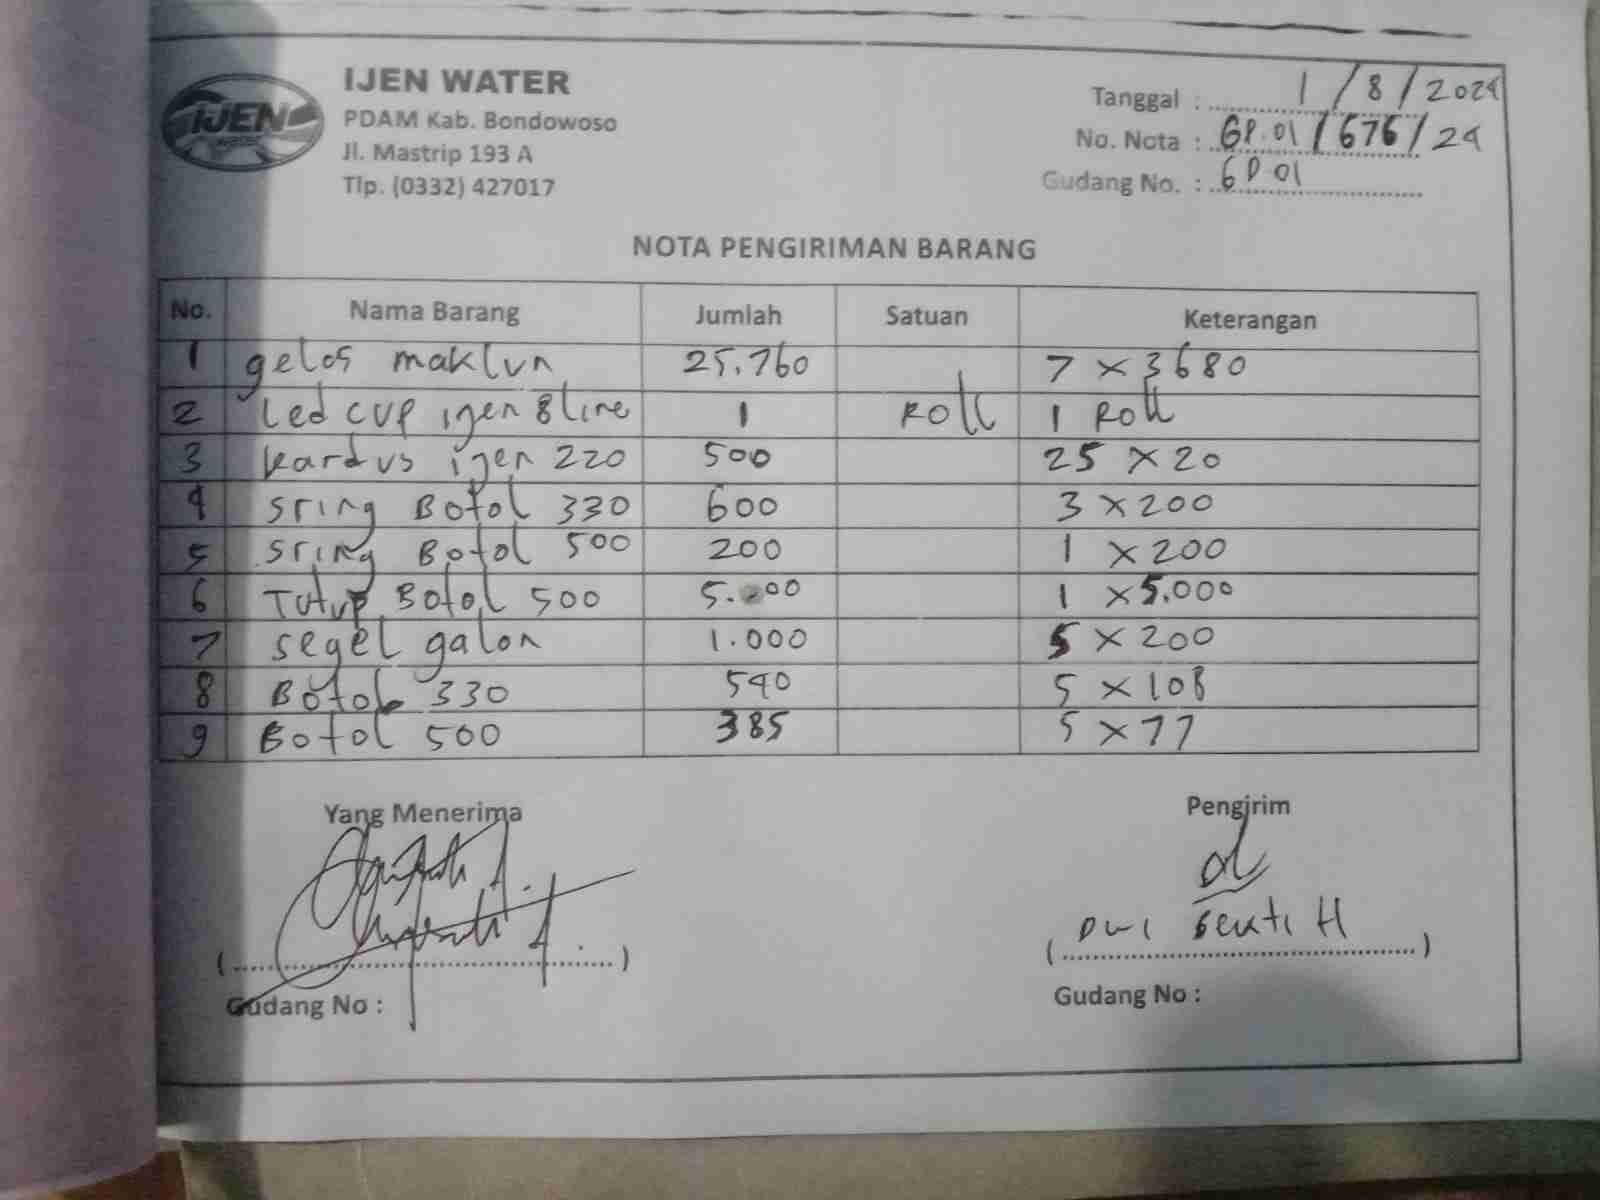 IJEN
IJEN WATER
PDAM Kab. Bondowoso
Jl. Mastrip 193 A
Tlp. (0332) 427017
Tanggal : 1 / 8 / 2024
No. Nota : GP.01 / 676 / 24
Gudang No. : GP 01
NOTA PENGIRIMAN BARANG
No. Nama Barang Jumlah Satuan Keterangan
1 gelas maklun 25.760 7 x 3680
2 Led cup ijen 8 line 1 Roll 1 Roll
3 kardus ijen 220 500 25 x 20
4 sring Botol 330 600 3 x 200
5 sring Botol 500 200 1 x 200
6 Tutup Botol 500 5.000 1 x 5.000
7 segel galon 1.000 5 x 200
8 Botol 330 540 5 x 108
9 Botol 500 385 5 x 77
Yang Menerima
Pengirim
Dwi H
Gudang No :
Gudang No :